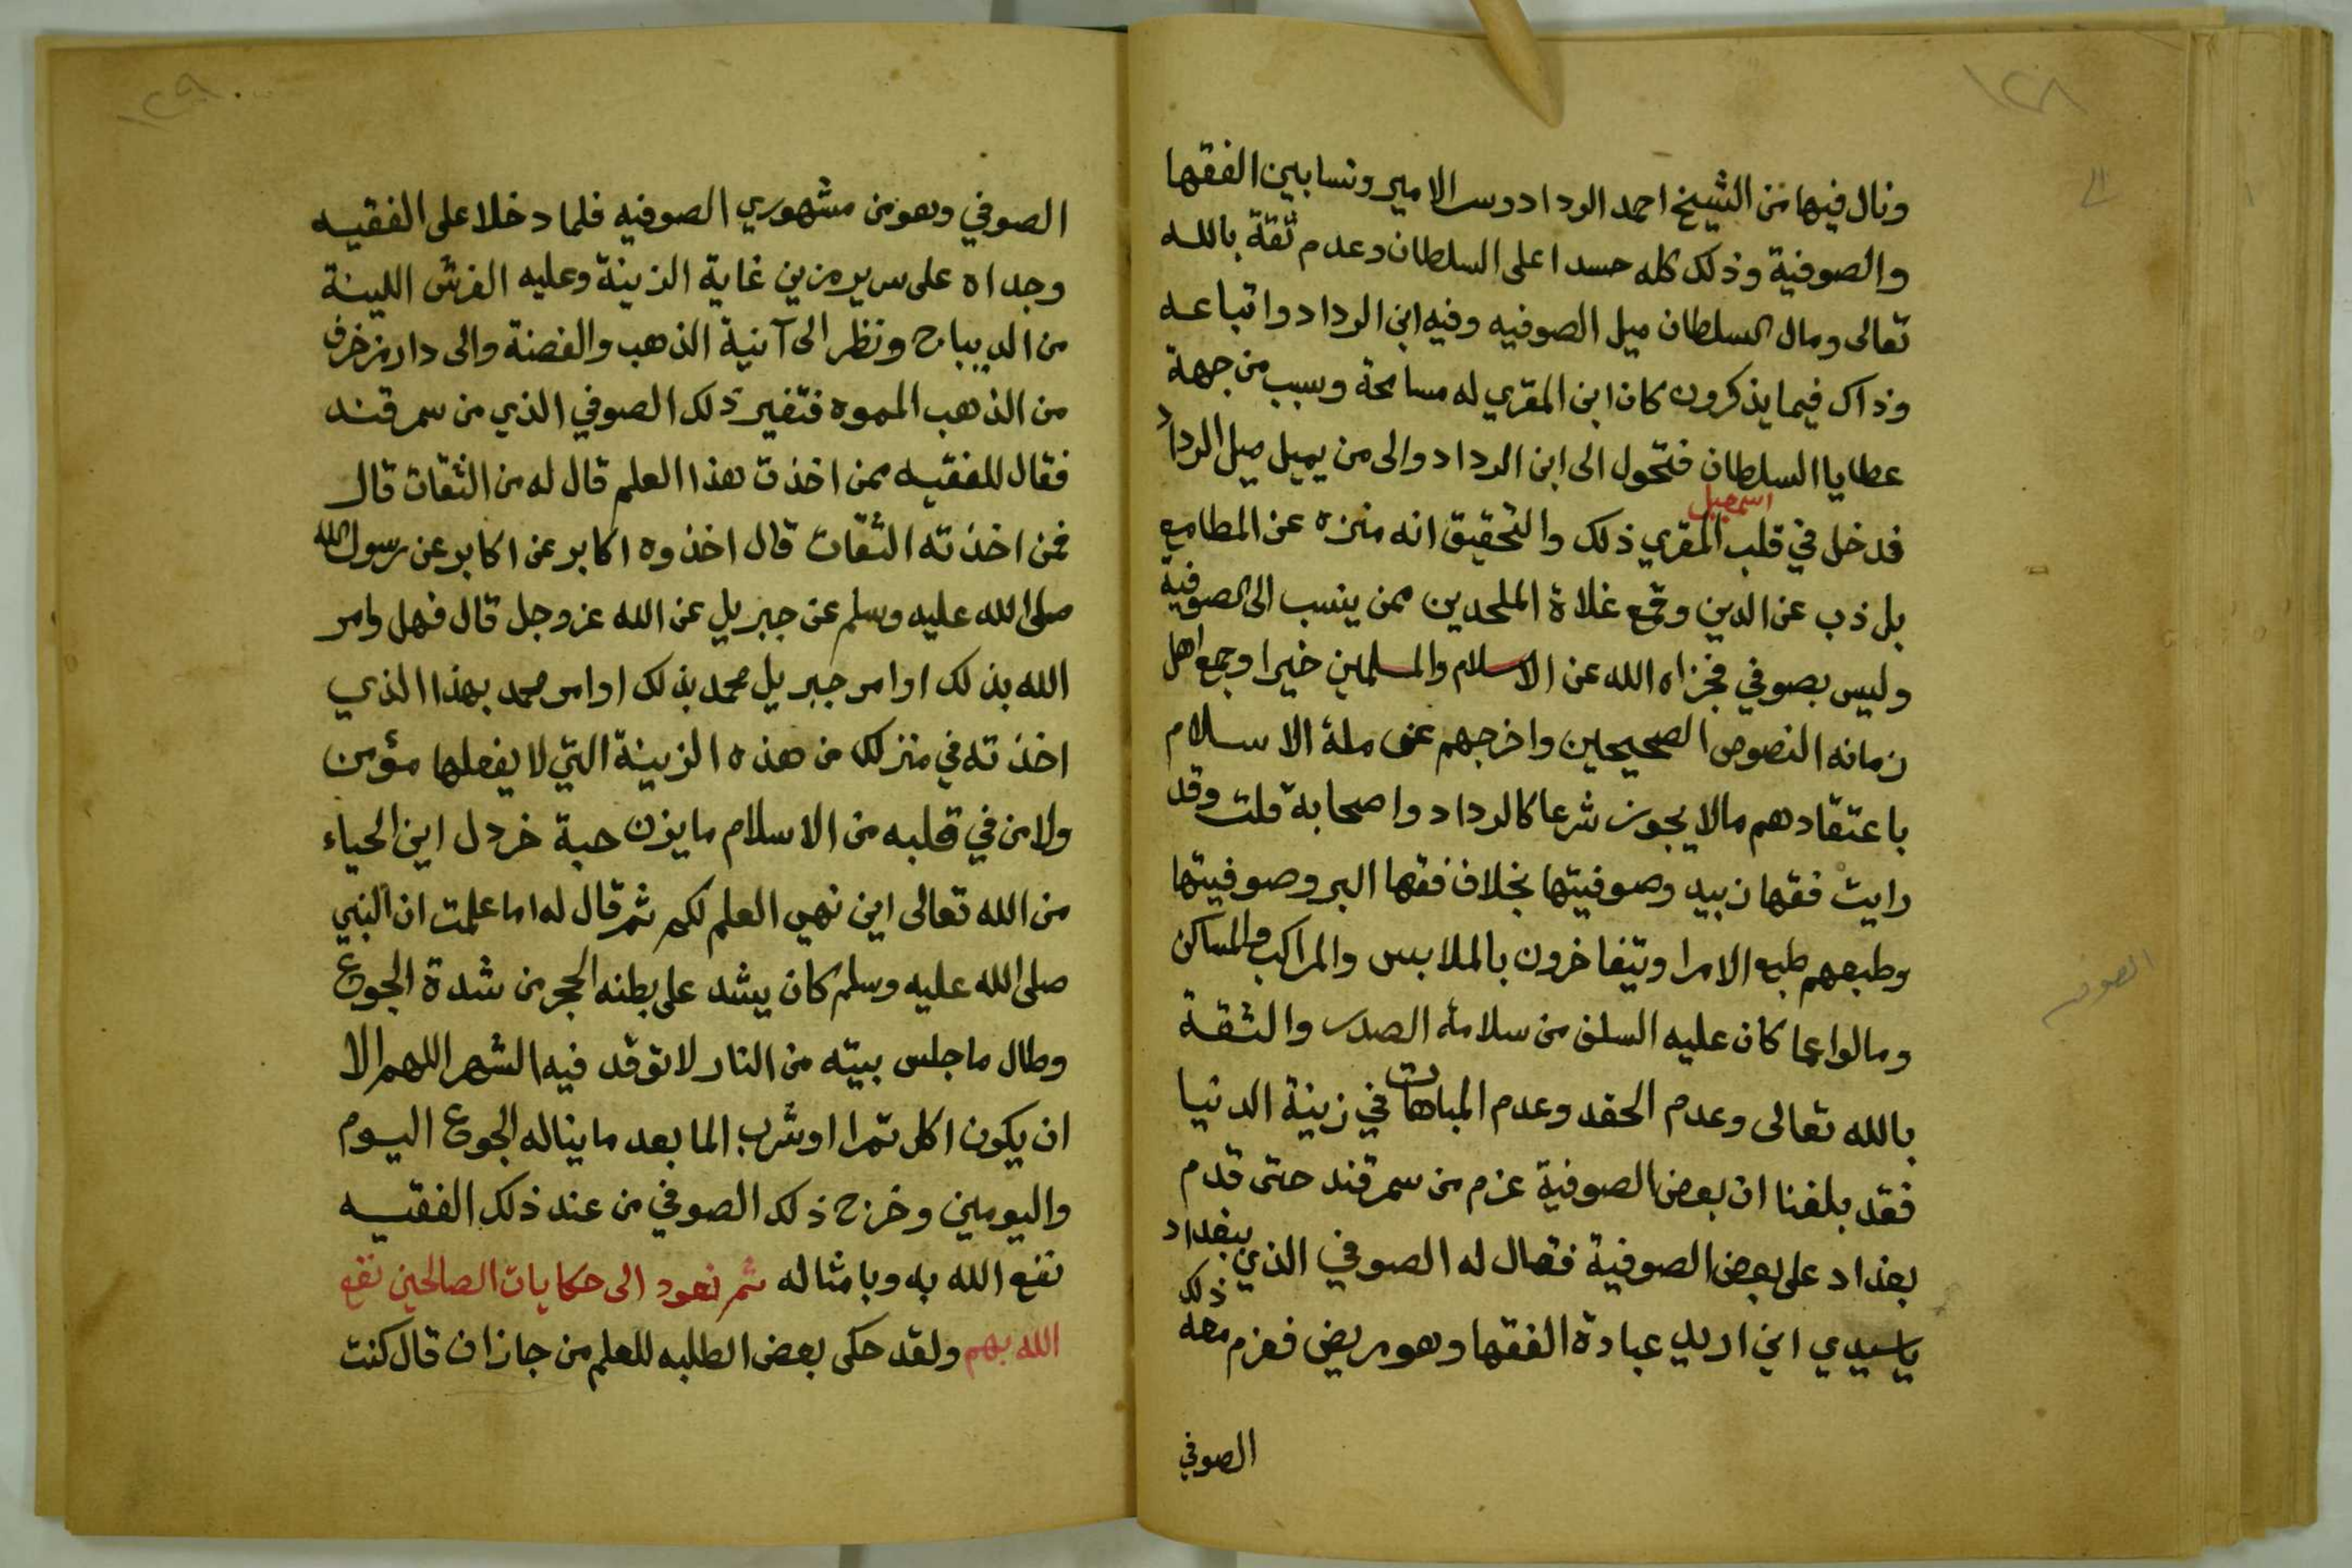 ١٢٨
ونال فيها من الشيخ احمد الرداد وس الامير ونسا بين الفقها
والصوفية وذلك كله حسدا على السلطان وعدم ثقة بالله
تعالى ومال السلطان ميل الصوفيه وفيه ابن الرداد واتباعه
وذاك فيما يذكرون كان ابن المقري له مسامحة وسبب من جهة
عطايا السلطان فتحول الى ابن الرداد والى من يميل ميل الرداد
اسمعيل
فدخل في قلب المقري ذلك والتحقيق انه منزه عن المطامع
بل ذب عن الدين وقمع غلاة الملحدين ممن ينسب الى الصوفية
وليس بصوفي فجزاه الله عن الاسلام والمسلمين خيرا وجمع اهل
زمانه النصوص الصحيحين واخرجهم عن ملة الاسلام
باعتقادهم مالا يجوز شرعا كالرداد واصحابه قلت وقد
رايت فقها زبيد وصوفيتها بخلاف فقها البر وصوفيتها
وطبعهم طبع الامرا ويتفاخرون بالملابس والمراكب والمساكن
ومالوا عما كان عليه السلف من سلامة الصدر والثقة
بالله تعالى وعدم الحقد وعدم المباهات في زينة الدنيا
فقد بلغنا ان بعض الصوفية عزم من سمرقند حتى قدم
بغداد على بعض الصوفية فقال له الصوفي الذي ببغداد
ياسيدي اني اريد عيادة الفقها وهو مريض فعزم معه ذلك
الصوفي
١٢٩
الصوفي وهو من مشهوري الصوفيه فلما دخلا على الفقيه
وجداه على سرير مزين غاية الزينة وعليه الفرش اللينة
من الديباج ونظر الى آنية الذهب والفضة والى دار مزخرف
من الذهب المموه فتغير ذلك الصوفي الذي من سمرقند
فقال للفقيه ممن اخذت هذا العلم قال له من الثقات قال
فمن اخذته الثقات قال اخذوه اكابر عن اكابر عن رسول الله
صلى الله عليه وسلم عن جبريل عن الله عز وجل قال فهل وامر
الله بذلك اوامر جبريل محمد بذلك اوامر محمد بهذا الذي
اخذته في منزلك من هذه الزينة التي لا يفعلها مؤمن
ولا من في قلبه من الاسلام ما يزن حبة خردل اين الحياء
من الله تعالى اين نهي العلم لكم ثم قال له اما علمت ان النبي
صلى الله عليه وسلم كان يشد على بطنه الحجر من شدة الجوع
وطال ما جلس بيته من النار لا توقد فيه الشهر اللهم الا
ان يكون اكل تمرا او شرب الما بعد ما يناله الجوع اليوم
واليومين وخرج ذلك الصوفي من عند ذلك الفقيه
نفع الله به وبامثاله ثم نعود الى حكايات الصالحين نفع
الله بهم ولقد حكى بعض الطلبه للعلم من جازان قال كنت